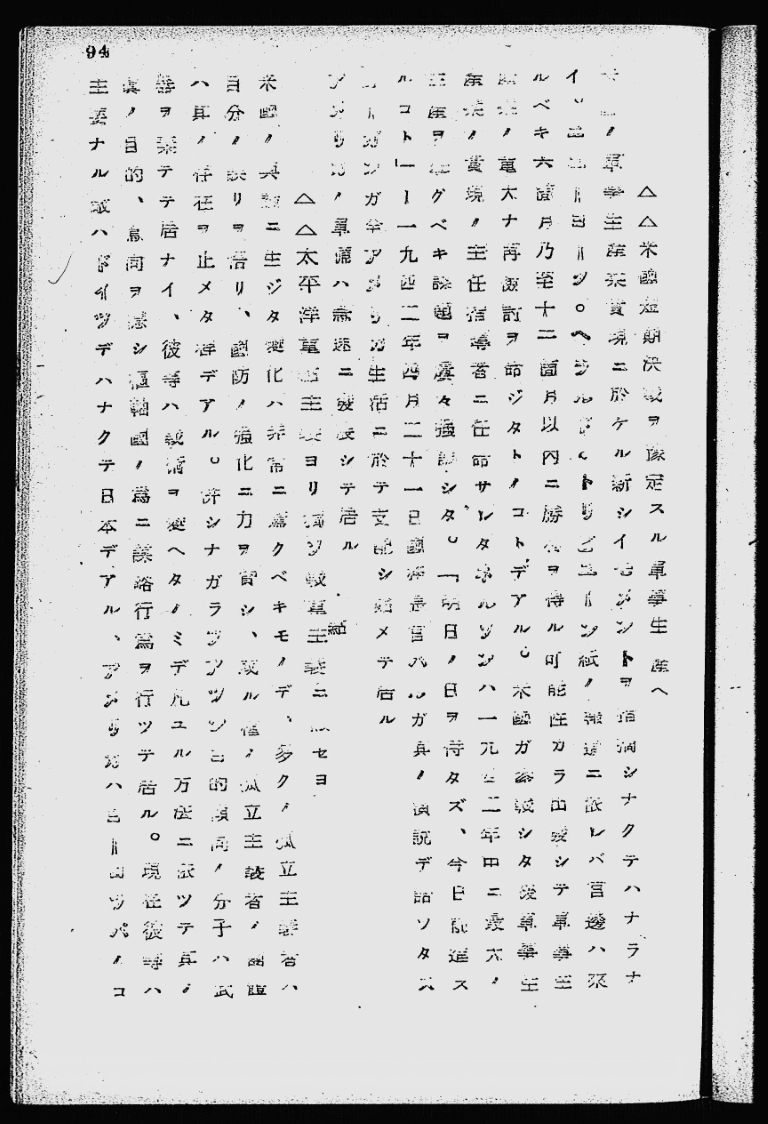 94
△△米國短期決戰ヲ豫定スル軍事生産ヘ
米國ノ軍事生産策實現ニ於ケル新シイモメントヲ指摘シナクテハナラナ
イ。ニューヨーク。ヘラルド、トリビューン紙ノ報道ニ依レバ官邊ハ來
ルベキ六箇月乃至十二箇月以內ニ勝利ヲ得ル可能性カラ出發シテ軍事生
産策ノ重大ナ再檢討ヲ命ジタトノコトデアル。米國ガ參戰シタ後軍事生
産策ノ實現ノ主任指導者ニ任命サレタネルソンハ一九四二年中ニ最大ノ
生産ヲ ベキ課題ヲ屢々強調シタ。「明日ノ日ヲ待タズ、今日 進ス
ルコト」ー一九四二年四月二十一日國 長官ハルガ其ノ演說デ語ツタス
ローガンガ全アメリカ生活ニ於テ支配シ始メテ居ル
アメリカノ軍備ハ急速ニ發展シテ居ル
△△太平洋軍 主義ヨリ獨ソ戰軍主義ニ セヨ
米國ノ與論ニ生ジタ變化ハ非常ニ驚クベキモノデ、多クノ孤立主義者ハ
自分ノ誤リヲ悟リ、國防ノ強化ニ力ヲ貸シ、或ル種ノ孤立主義者ノ團體
ハ其ノ存在ヲ止メタ程デアル。併シナガラフアツシヨ的傾向ノ分子ハ武
器ヲ棄テテ居ナイ、彼等ハ戰術ヲ變ヘタノミデ凡ユル方法ニ依ツテ其ノ
眞ノ目的、意向ヲ隱シ樞軸國ノ爲ニ謀略行爲ヲ行ツテ居ル。現在彼等ハ
主要ナル敵ハドイツデハナクテ日本デアル、アメリカハヨーロツパノコ